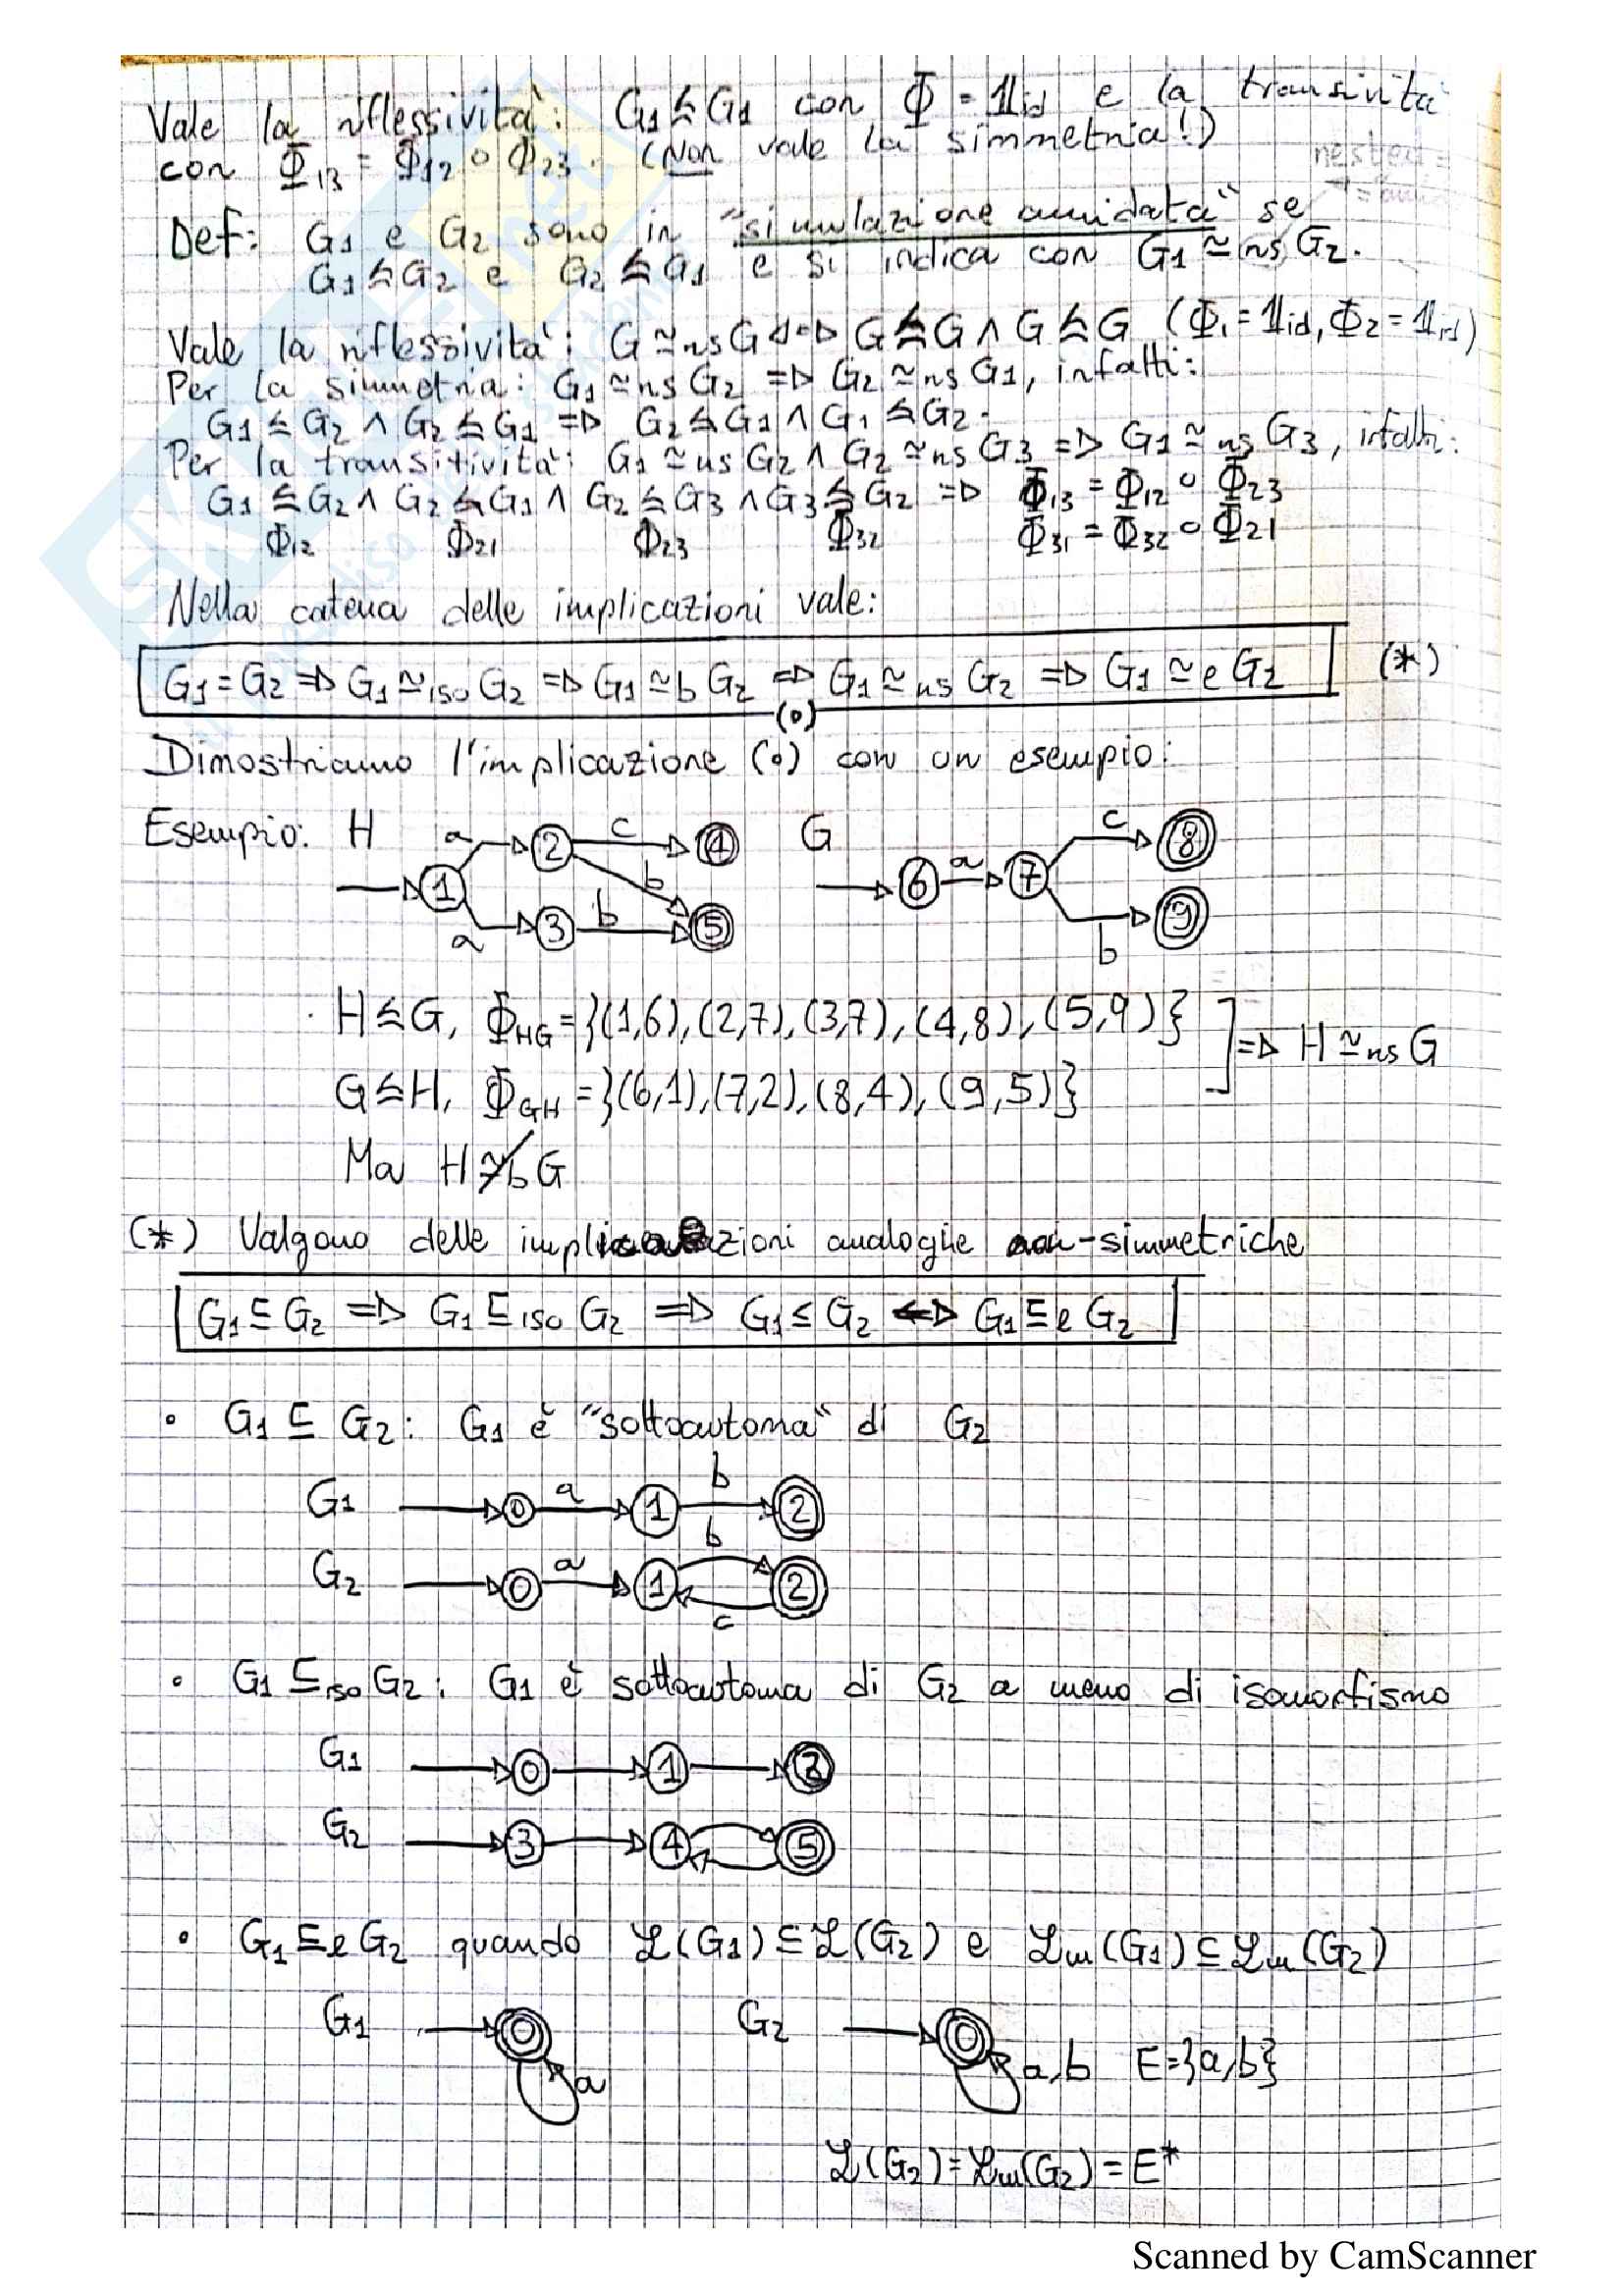 Vale la riflessività: G1 ≤ G1 con Φ = 𝟙id e la transività
con Φ13 = Φ12 ∘ Φ23. (Non vale la simmetria!)
Def: G1 e G2 sono in "simulazione annidata" se
G1 ≤ G2 e G2 ≤ G1 e si indica con G1 ≃ns G2.
Vale la riflessività: G ≃ns G ⇔ G ≤ G ∧ G ≤ G (Φ1 = 𝟙id, Φ2 = 𝟙id)
Per la simmetria: G1 ≃ns G2 ⇒ G2 ≃ns G1, infatti:
G1 ≤ G2 ∧ G2 ≤ G1 ⇒ G2 ≤ G1 ∧ G1 ≤ G2.
Per la transitività: G1 ≃ns G2 ∧ G2 ≃ns G3 ⇒ G1 ≃ns G3, infatti:
G1 ≤ G2 ∧ G2 ≤ G1 ∧ G2 ≤ G3 ∧ G3 ≤ G2 ⇒ Φ13 = Φ12 ∘ Φ23
Φ12 Φ21 Φ23 Φ32 Φ31 = Φ32 ∘ Φ21
Nella catena delle implicazioni vale:
G1 = G2 ⇒ G1 ≃iso G2 ⇒ G1 ≃b G2 ⇒ G1 ≃ns G2 ⇒ G1 ≃e G2 (*)
(o)
Dimostriamo l'implicazione (o) con un esempio:
Esempio: H a 2 c 4 G c 8
1 b 6 a 7
a 3 b 5 9
b
H ≤ G, ΦHG = {(1,6), (2,7), (3,7), (4,8), (5,9)}
⇒ H ≃ns G
G ≤ H, ΦGH = {(6,1), (7,2), (8,4), (9,5)}
Ma H ≄b G
(*) Valgono delle implicazioni analoghe non-simmetriche
G1 ⊆ G2 ⇒ G1 ⊑iso G2 ⇒ G1 ≤ G2 ⇔ G1 ⊑e G2
• G1 ⊆ G2: G1 è "sottoautoma" di G2
G1 0 a 1 b 2
G2 0 a 1 b 2
c
• G1 ⊆iso G2: G1 è sottoautoma di G2 a meno di isomorfismo
G1 0 1 2
G2 3 4 5
• G1 ⊑e G2 quando ℒ(G1) ⊆ ℒ(G2) e ℒm(G1) ⊆ ℒm(G2)
G1 0 G2 0
a a,b E={a,b}
ℒ(G2) = ℒm(G2) = E*
Scanned by CamScanner